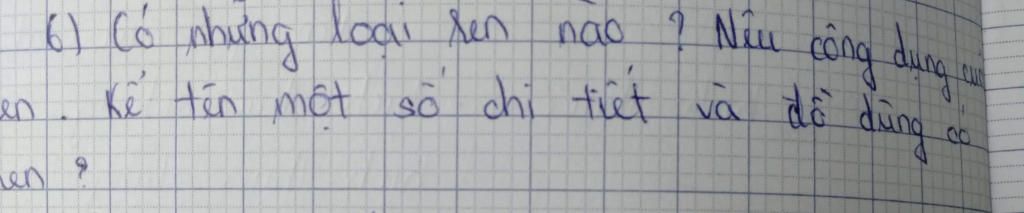 6) Có những loại ren nào ? Nêu công dụng của
en. Kể tên một số chi tiết và đồ dùng có
en ?